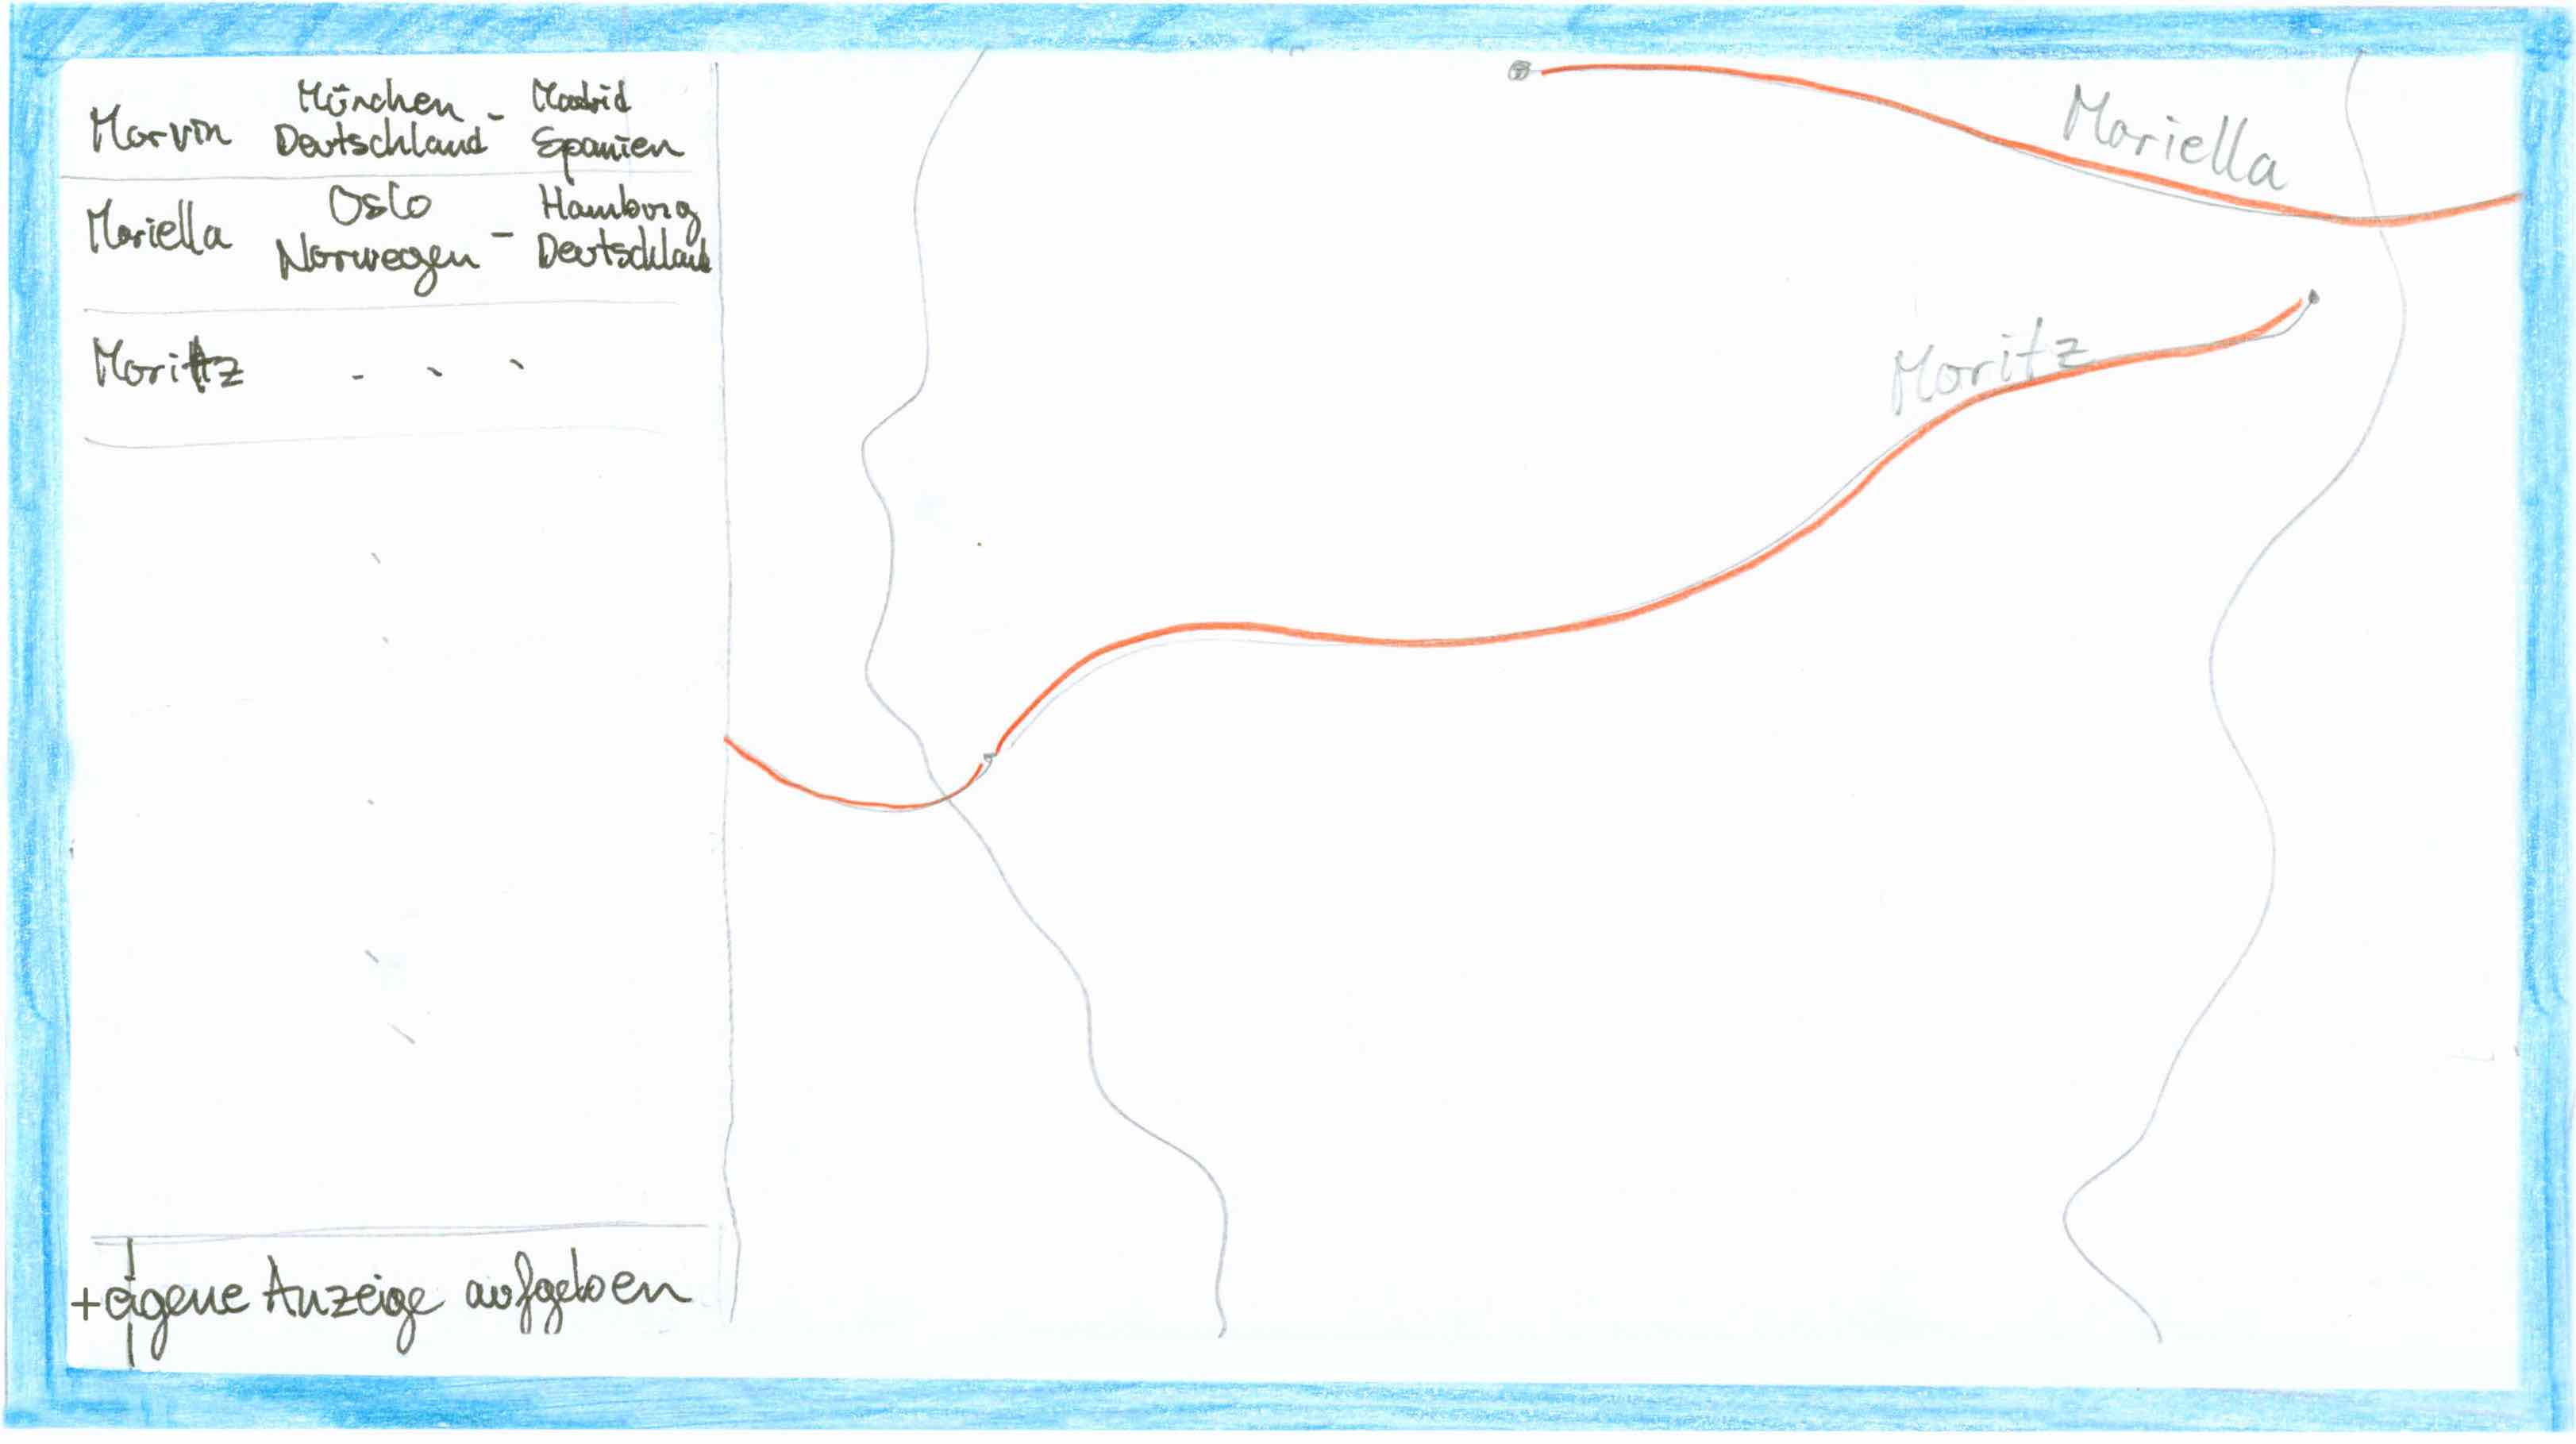 Marvin München Deutschland - Madrid Spanien
Mariella Oslo Norwegen - Hamburg Deutschland
Moritz . . .
+ eigene Anzeige aufgeben
Mariella
Moritz